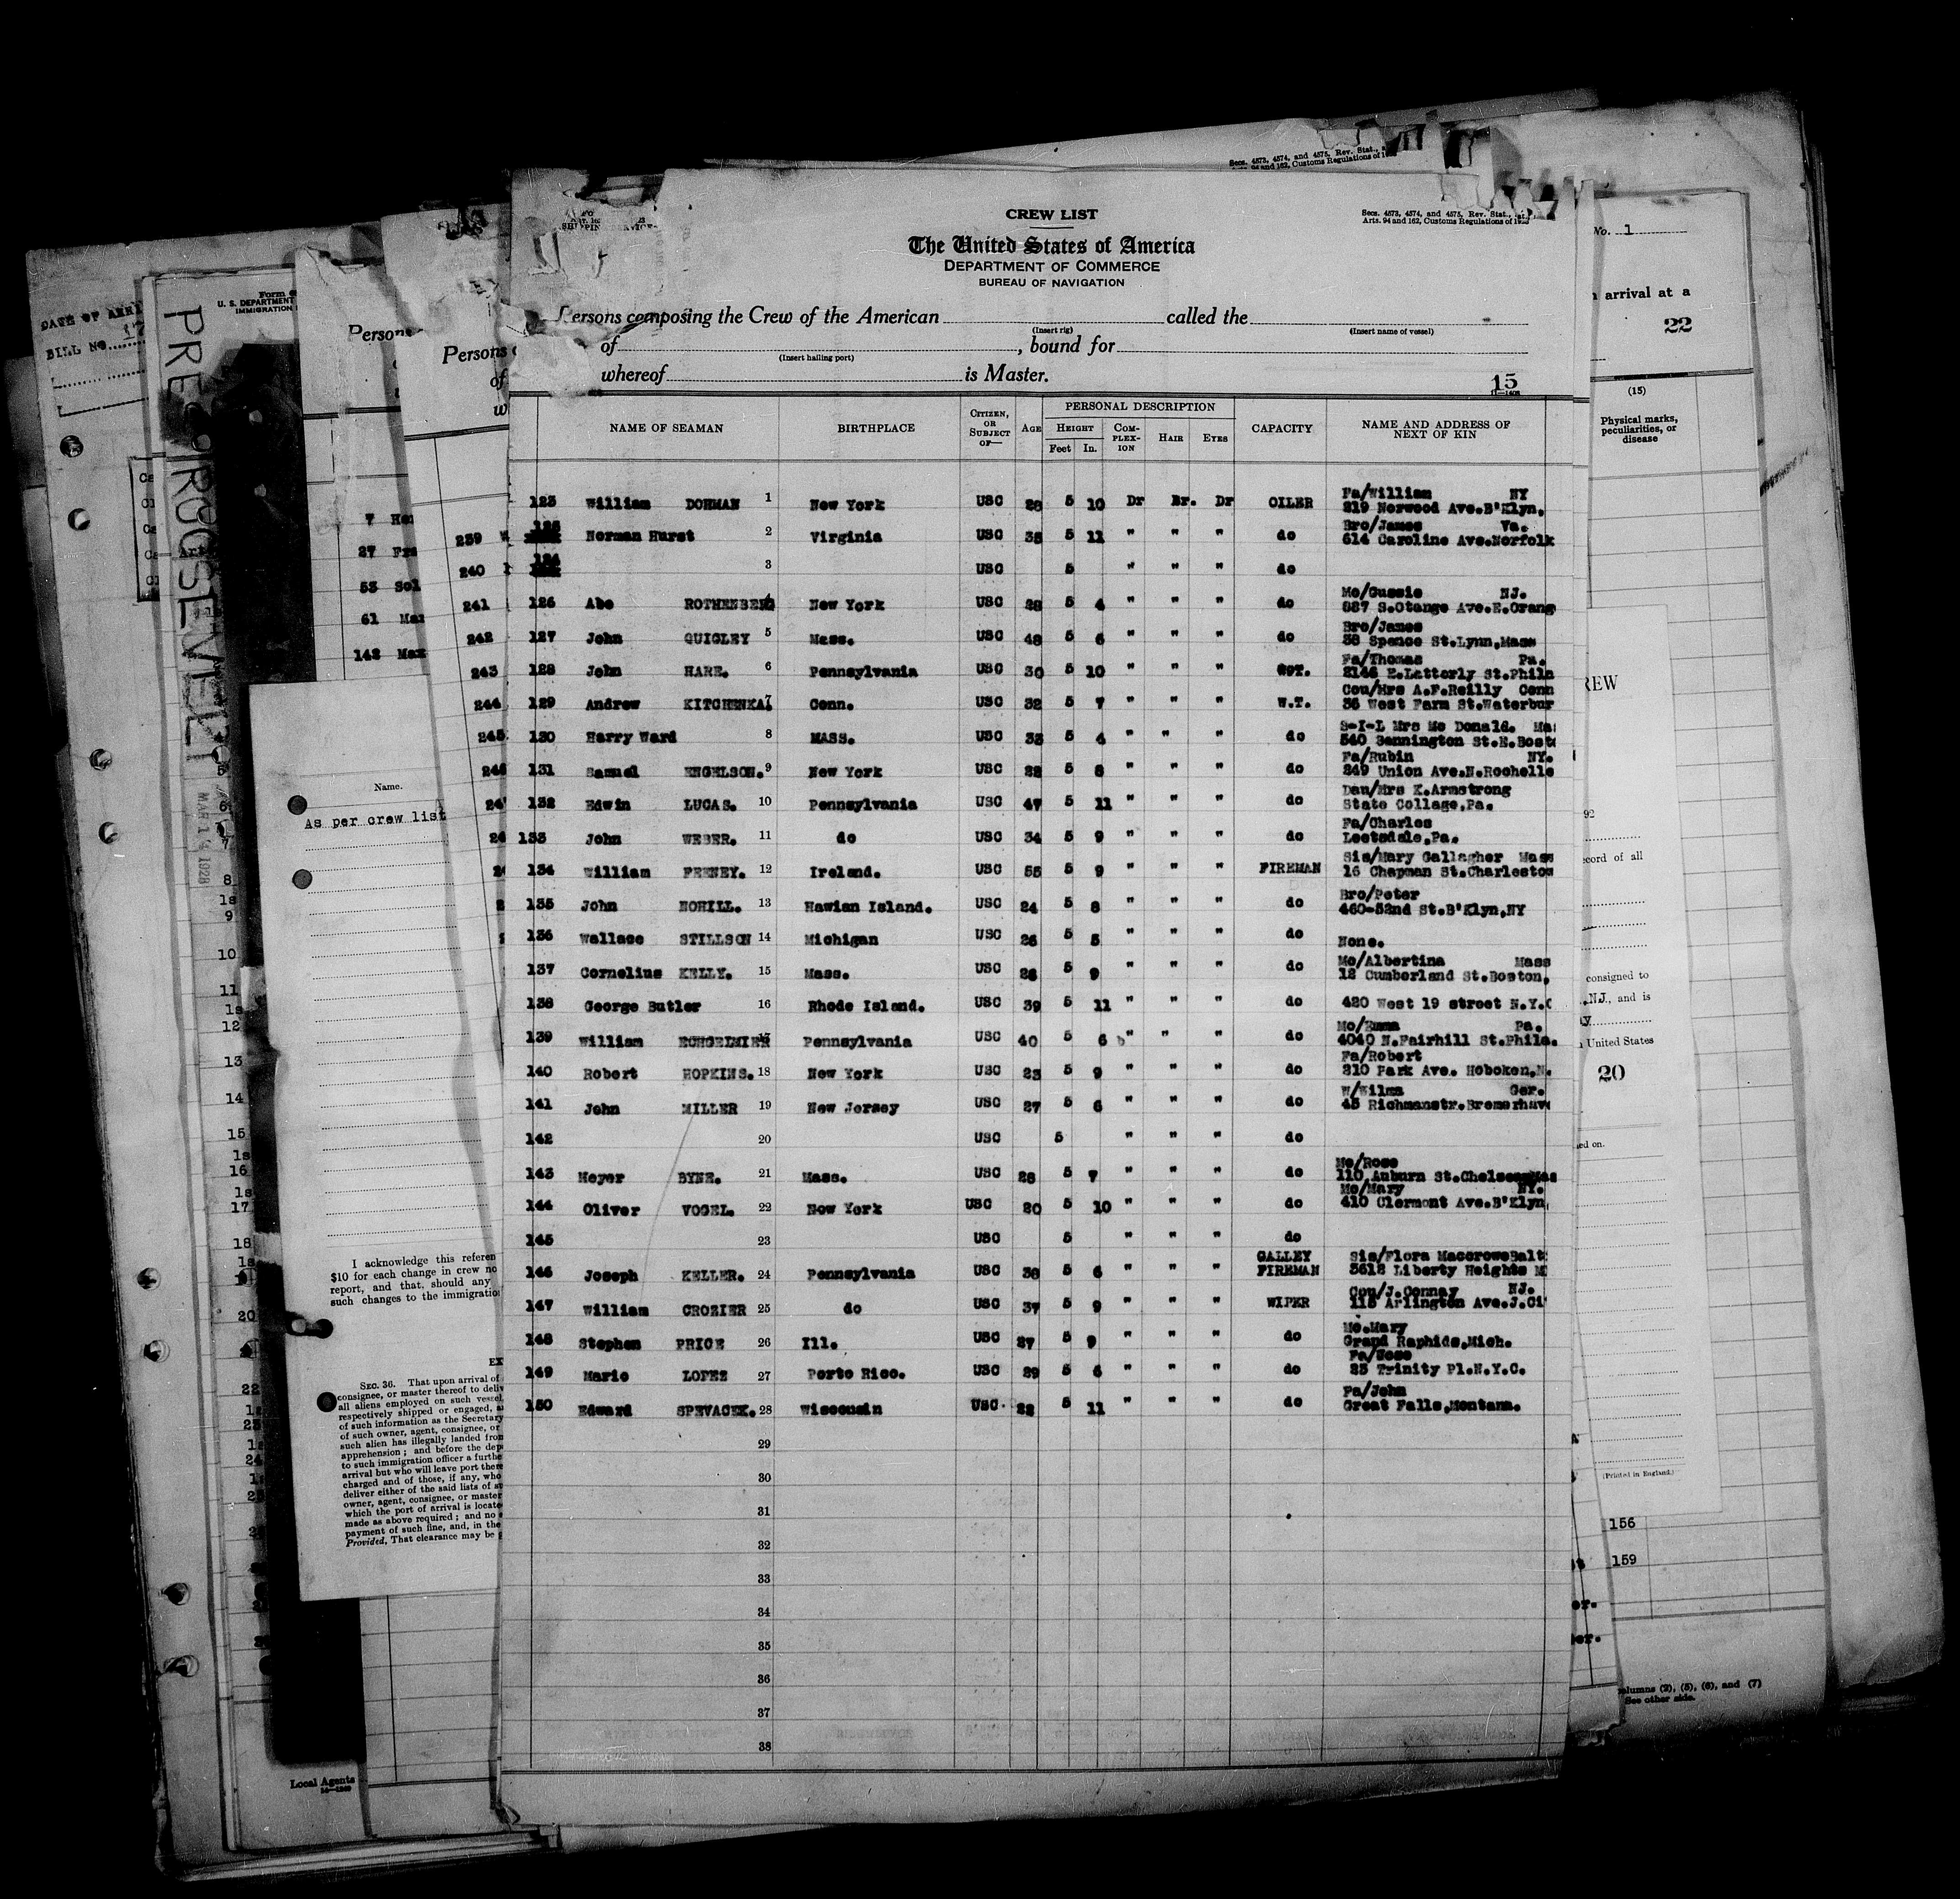 CREW LIST
The United States of America
DEPARTMENT OF COMMERCE
BUREAU OF NAVIGATION
Secs. 4573, 4574, and 4575, Rev. Stat.,
Arts. 94 and 162, Customs Regulations of
Persons composing the Crew of the American called the
(Insert rig) (Insert name of vessel)
of , bound for
(Insert hailing port)
whereof is Master.
15
NAME OF SEAMAN BIRTHPLACE CITIZEN, OR SUBJECT OF— AGE PERSONAL DESCRIPTION HEIGHT Feet In. COMPLEXION HAIR EYES CAPACITY NAME AND ADDRESS OF NEXT OF KIN
123 William DOHMAN 1 New York USC 28 5 10 Dr Br. Dr OILER Fa/William NY
219 Norwood Ave.B'Klyn,
125 Norman Hurst 2 Virginia USC 35 5 11 " " " do Bro/James Va.
614 Caroline Ave.Norfolk
124 3 USC 5 " " do
126 Abe ROTHENBERG New York USC 28 5 4 " " " do Mo/Gussie NJ.
887 S.Otange Ave.E.Orang
127 John QUIGLEY 5 Mass. USC 48 5 6 " " " do Bro/James
38 Spence St.Lynn,Mass
128 John HARE. 6 Pennsylvania USC 30 5 10 " " " Fa/Thomas Pa.
2146 E.Latterly St.Phila
129 Andrew KITCHENKA 7 Conn. USC 32 5 7 " " " W.T. Cou/Mrs A.F.Reilly Conn
36 West Farm St.Waterbur
130 Harry Ward 8 MASS. USC 33 5 4 " " " do S-I-L Mrs Mc Donald. Ma
540 Bennington St.E.Bost
131 Samuel ENGELSON. 9 New York USC 22 5 8 " " " do Fa/Rubin NY.
249 Union Ave.N.Rochelle
132 Edwin LUCAS. 10 Pennsylvania USC 47 5 11 " " " do Dau/Mrs K.Armstrong
State Collage,Pa.
133 John WEBER. 11 do USC 34 5 9 " " " do Fa/Charles
Leetsdale,Pa.
134 William FEENEY. 12 Ireland. USC 55 5 9 " " " FIREMAN Sis/Mary Gallagher Mass
16 Chapman St.Charleston
135 John NOHILL. 13 Hawian Island. USC 24 5 8 " " " do Bro/Peter
460-52nd St.B'Klyn,NY
136 Wallace STILLSON 14 Michigan USC 26 5 5 " " " do None.
137 Cornelius KELLY. 15 Mass. USC 28 5 9 " " " do Mo/Albertina Mass
12 Cumberland St.Boston,
138 George Butler 16 Rhode Island. USC 39 5 11 " " " do 420 West 19 street N.Y.C
139 William 17 Pennsylvania USC 40 5 6 " " " do Mo/Emma Pa.
4040 N.Fairhill St.Phila.
140 Robert HOPKINS. 18 New York USC 23 5 9 " " " do Fa/Robert
210 Park Ave. Hoboken,N.
141 John MILLER 19 New Jersey USC 27 5 6 " " " do W/Wilma Ger.
45 Richmanstr.Bremerhav
142 20 USC 5 " " " do
143 Meyer BYNE. 21 Mass. USC 28 5 7 " " " do Mo/Rose
110 Auburn St.Chelsea,Mas
144 Oliver VOGEL. 22 New York USC 20 5 10 " " " do Mo/Mary NY.
410 Clermont Ave.B'Klyn,
145 23 USC 5 " " " do
146 Joseph KELLER. 24 Pennsylvania USC 38 5 6 " " " GALLEY FIREMAN Sis/Flora MaccroweBalt
3612 Liberty Heights M
147 William CROZIER 25 do USC 37 5 9 " " " WIPER Cou/J.Connay NJ.
115 Arlington Ave.J.Ci
148 Stephen PRICE 26 Ill. USC 27 5 9 " " " do Mo.Mary
Grand Rapids,Mich.
149 Mario LOPEZ 27 Porto Rico. USC 29 5 6 " " " do Fa/Jose
25 Trinity Pl.N.Y.C.
150 Edward SPEVACEK. 28 Wisconsin USC 22 5 11 " " " do Fa/John
Great Falls,Montana.
29
30
31
32
33
34
35
36
37
38
DATE OF ARRI
BILL NO. 17
PRES ROOSEVELT
MAR 14 1928
U. S. DEPARTMENT
IMMIGRATION
Persons
Persons
of
7
27 Fra
53 Sol
61
142 Max
239
240
241
242
243
244
245
Name.
As per crew list
I acknowledge this referen
$10 for each change in crew no
report, and that, should any
such changes to the immigratio
SEC. 36. That upon arrival of
consignee, or master thereof to deliv
all aliens employed on such vessel
respectively shipped or engaged, a
of such information as the Secretary
of such owner, agent, consignee, or
such alien has illegally landed from
apprehension; and before the dep
to such immigration officer a furthe
arrival but who will leave port there
charged and of those, if any, who
deliver either of the said lists of
owner, agent, consignee, or master
which the port of arrival is locate
made as above required; and no
payment of such fine, and, in the
Provided, That clearance may be
Local Agents
No. 1
arrival at a
22
(15)
Physical marks,
peculiarities, or
disease
REW
92
ecord of all
consigned to
N.J., and is
United States
20
ed on.
(Printed in England.)
156
159
columns (2), (5), (6), and (7)
See other side.